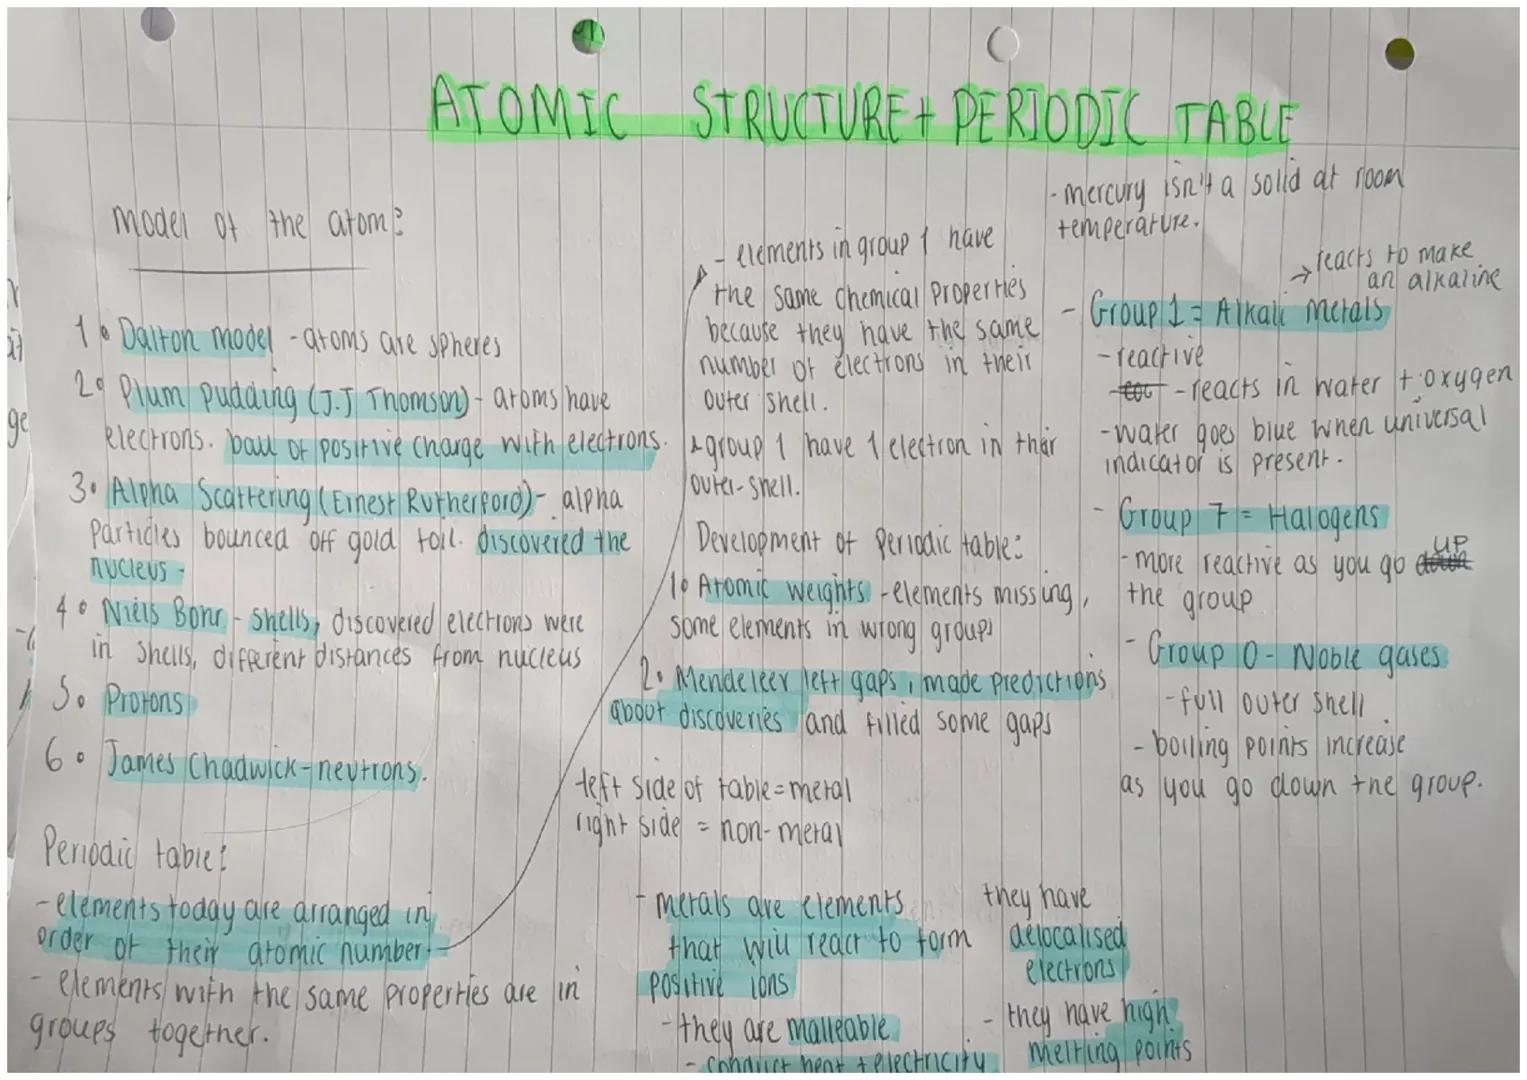 ATOMIC STRUCTURE + PERIODIC TABLE
Model of the atom:
1. Dalton model - atoms are spheres
2. Plum pudding (J.J Thomson) - atoms have
electrons. ball of positive charge with electrons.
3. Alpha Scattering (Ernest Rutherford) - alpha
particles bounced off gold foil. discovered the
nucleus -
4. Niels Bohr - shells, discovered electrons were
in shells, different distances from nucleus
5. Protons
6. James Chadwick - neutrons.
Periodic table:
- elements today are arranged in
order of their atomic number.
- elements with the same properties are in
groups together.
- elements in group 1 have
the same chemical properties
because they have the same
number of electrons in their
outer shell.
group 1 have 1 electron in their
outer-shell.
Development of Periodic table:
1. Atomic weights - elements missing,
some elements in wrong groups
2. Mendeleev left gaps, made predictions
about discoveries and filled some gaps
left side of table = metal
right side = non-metal
- metals are elements
that will react to form
positive ions
- they are malleable
- conduct heat + electricity
they have
delocalised
electrons
- they have high
melting points
- mercury isn't a solid at room
temperature.
→ reacts to make
an alkaline
- Group 1 = Alkali metals
- reactive
- reacts in water + oxygen
- water goes blue when universal
indicator is present.
- Group 7 = Halogens
- more reactive as you go up
the group
- Group 0 - Noble gases
- full outer shell
- boiling points increase
as you go down the group.